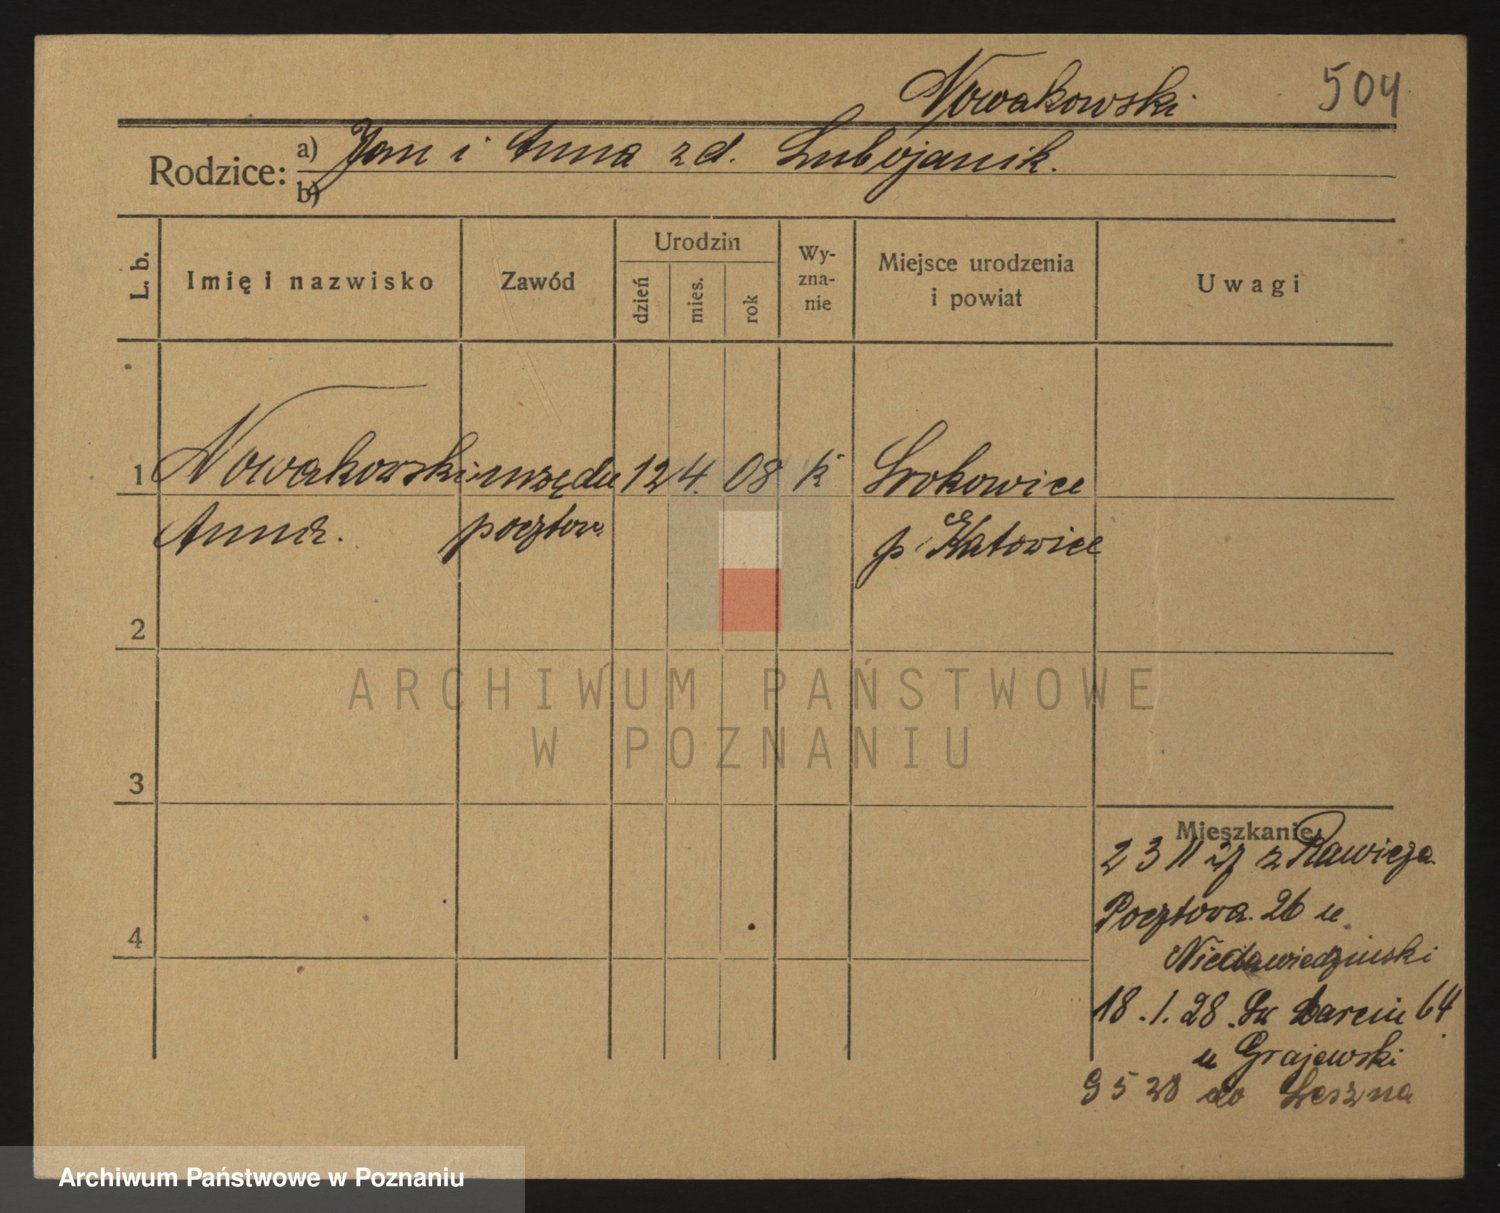 Nowakowski 504
Rodzice: a) Jan i Anna zd. Lubojanik.
b)
L. b. Imię i nazwisko Zawód Urodzin dzień mies. rok Wyznanie Miejsce urodzenia i powiat Uwagi
1 Nowakowski urzędn 12 4. 08 k
Anna. pocztow. p Katowice
2
ARCHIWUM PAŃSTWOWE
W POZNANIU
3
Mieszkanie
23 11 27 z Rawicza
4 Pocztowa. 26 u
18.1.28. Św Marcin 64
u Grajewski
9 5 28 do Leszna
Archiwum Państwowe w Poznaniu